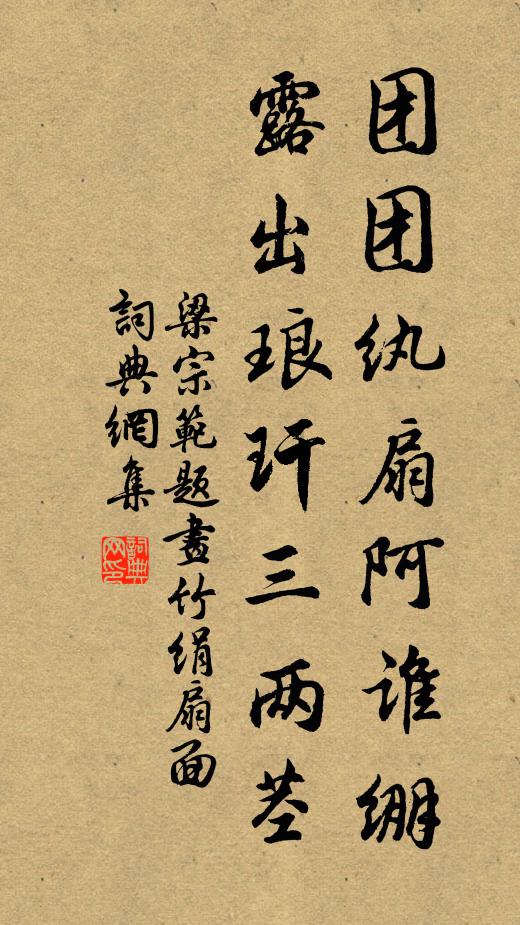 团团纨扇阿谁绷
露出琅玕三两茎
梁宗範题畫竹绢扇面
詞典網集
詞典网印